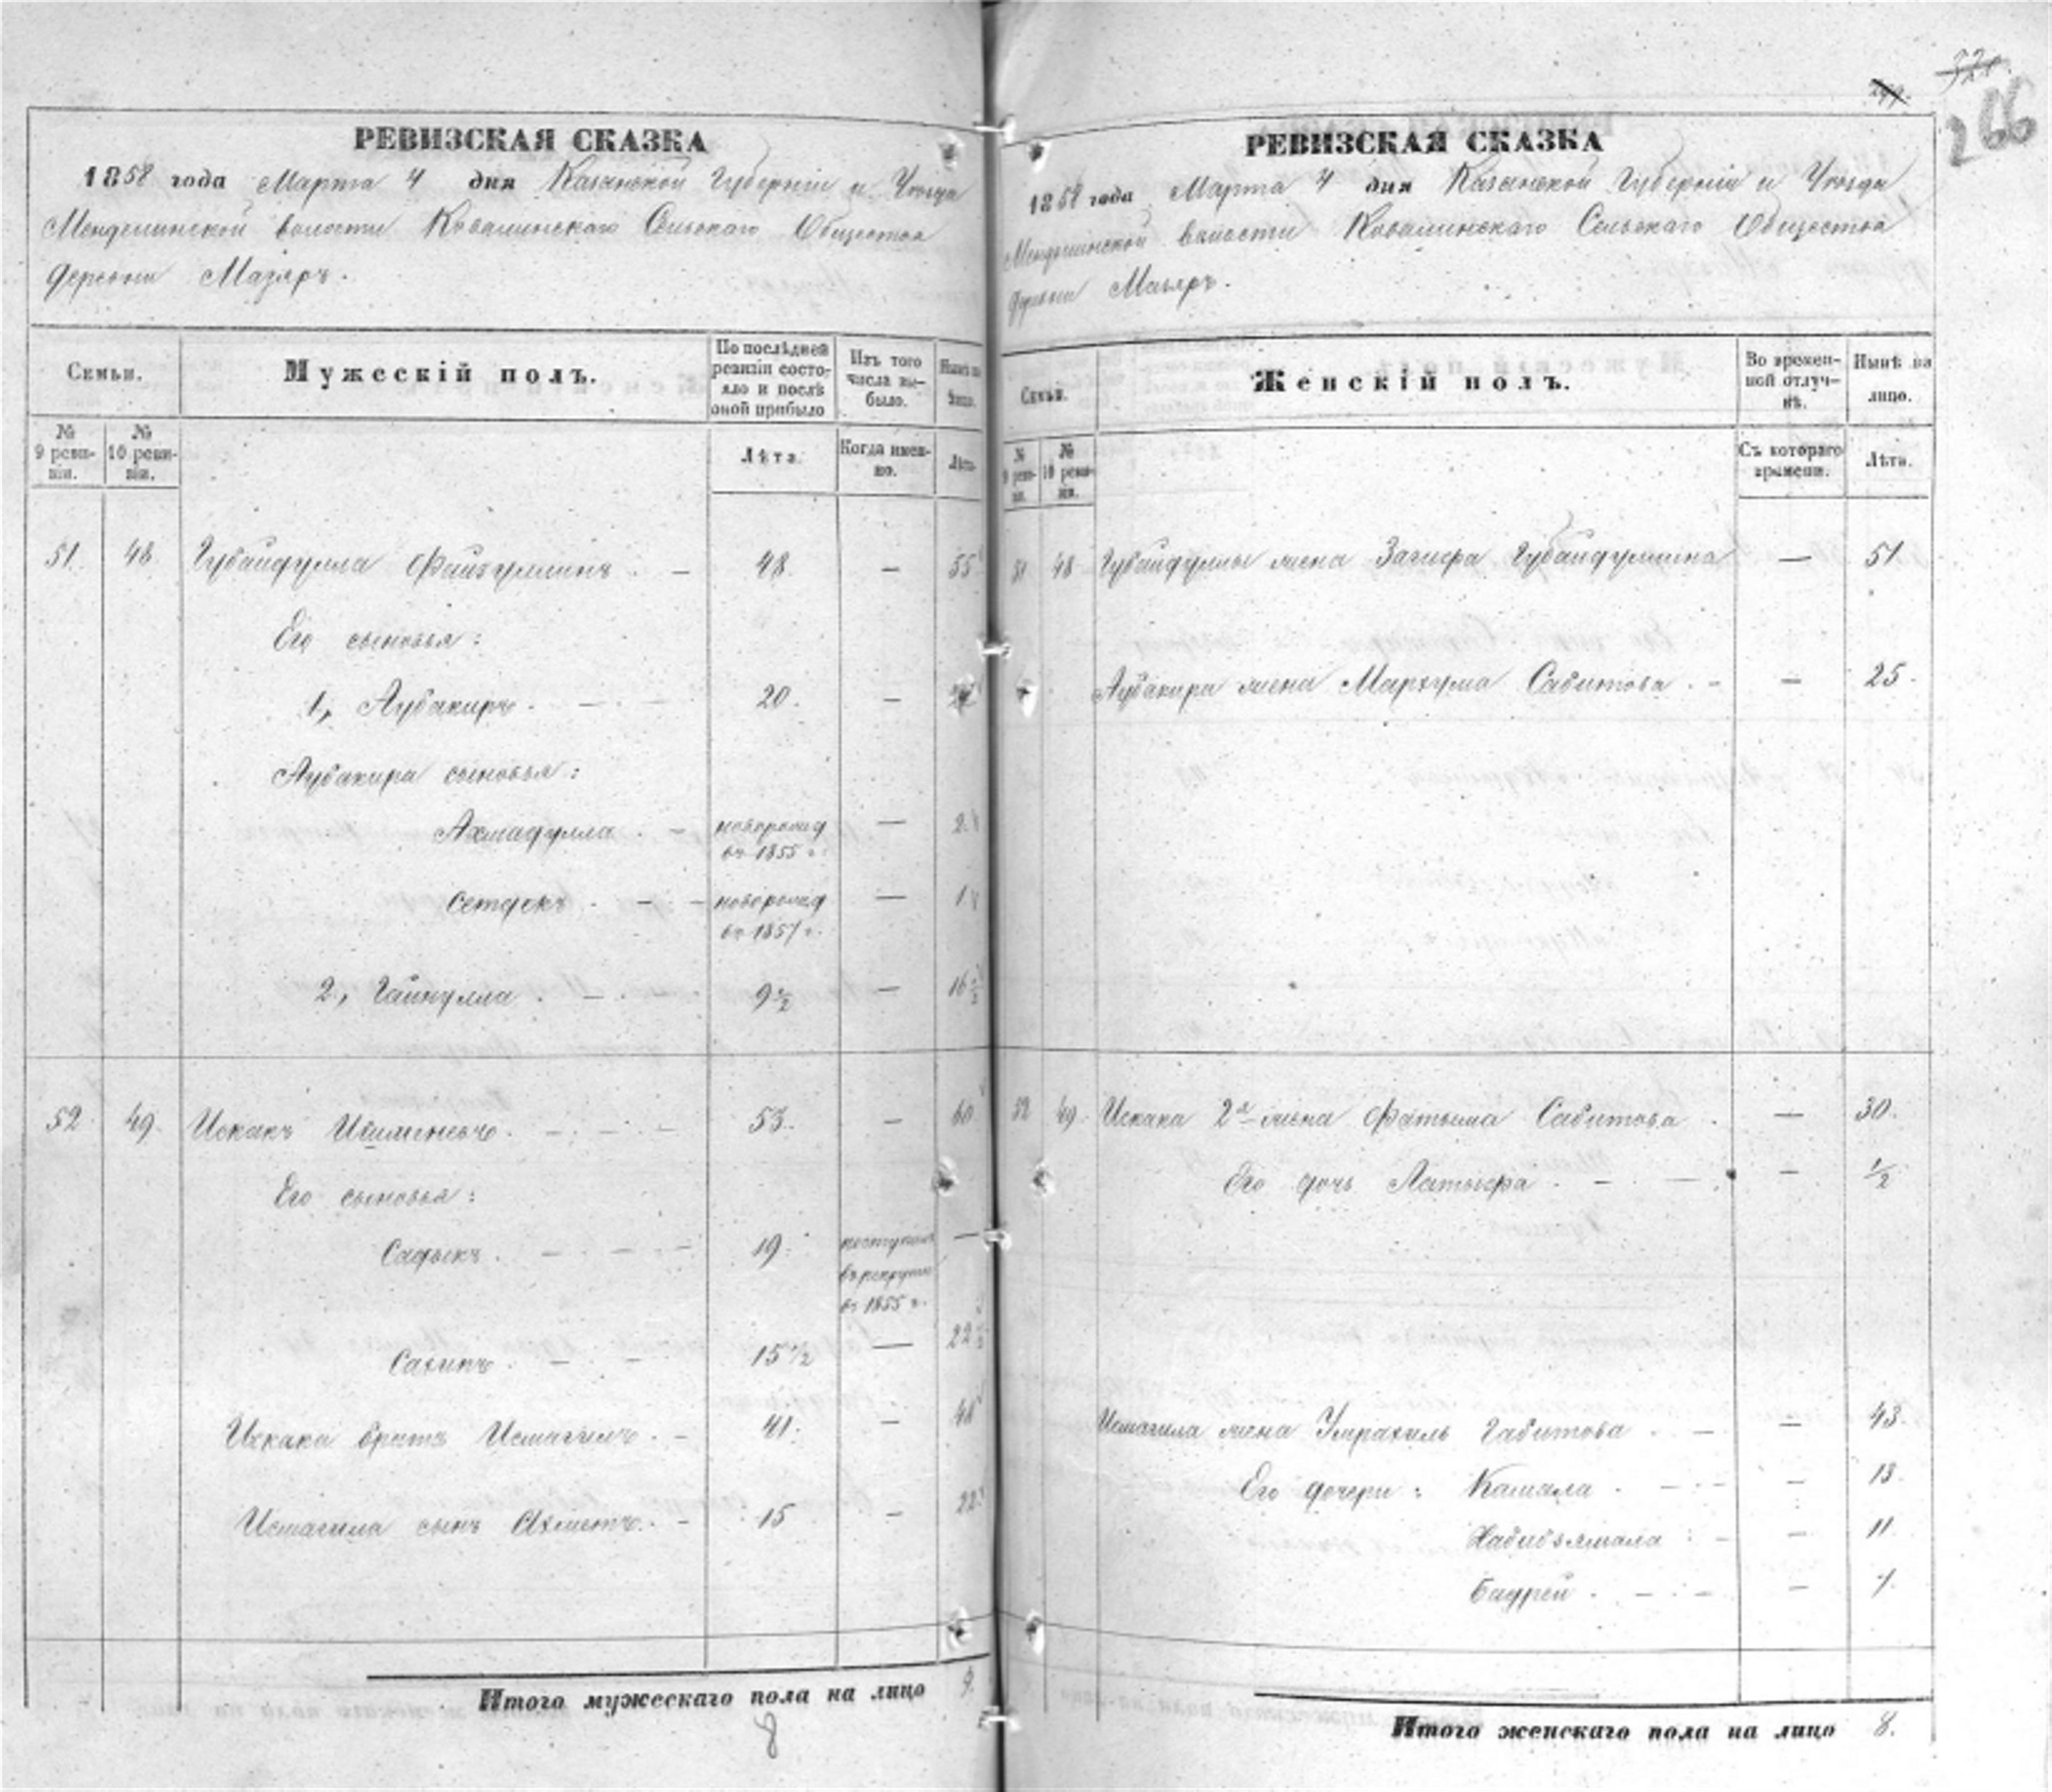 266
РЕВИЗСКАЯ СКАЗКА
1858 года Марта 4 дня Казанской Губерніи и Уезда
Менделинской волости Ковалинскаго Сельскаго Общества
деревни Мазяръ.
Семьи.
Мужескій полъ.
По послѣдней ревизіи состояло и послѣ оной прибыло
Изъ того числа выбыло.
Нынѣ на лицо.
№ 9 ревизіи.
№ 10 ревизіи.
Лѣта
Когда именно.
Лѣта
51. 48. Губайдулла Файзуллинъ. — 48. — 55
Его сыновья:
1, Аубакиръ. — 20. —
Аубакира сыновья:
Ахмадулла. — новорожд — 2
въ 1855 г.
Сетдекъ. — новорожд — 1
въ 1857 г.
2, Гайнулла. — 9 1/2 — 16 1/2
52. 49. Искакъ — 53. — 60
Его сыновья:
Садыкъ. — 19. поступилъ —
въ рекруты
въ 1855 г.
Сахипъ. — 15 1/2 — 22 1/2
Искака братъ Исмагилъ. — 41. — 48
Исмагила сынъ Ахметъ. — 15 — 22
Итого мужескаго пола на лицо 9.
8
РЕВИЗСКАЯ СКАЗКА
1858 года Марта 4 дня Казанской Губерніи и Уезда
Менделинской волости Ковалинскаго Сельскаго Общества
деревни Мазяръ.
Семьи.
Женскій полъ.
Во временной отлучкѣ.
Нынѣ на лицо.
№ 9 ревизіи.
№ 10 ревизіи.
Съ котораго времени.
Лѣта.
51 48 Губайдуллы жена Загифа Губайдуллина — 51.
Аубакира жена Мархума Сабитова. — 25.
52 49. Искака 2я жена Фатыма Сабитова. — 30.
Его дочь Латыфа. — 1/2
Исмагила жена Габитова. — 43.
Его дочери: Камала. — 13.
Хабибзямала — 11
Бадрей. — 1.
Итого женскаго пола на лицо 8.